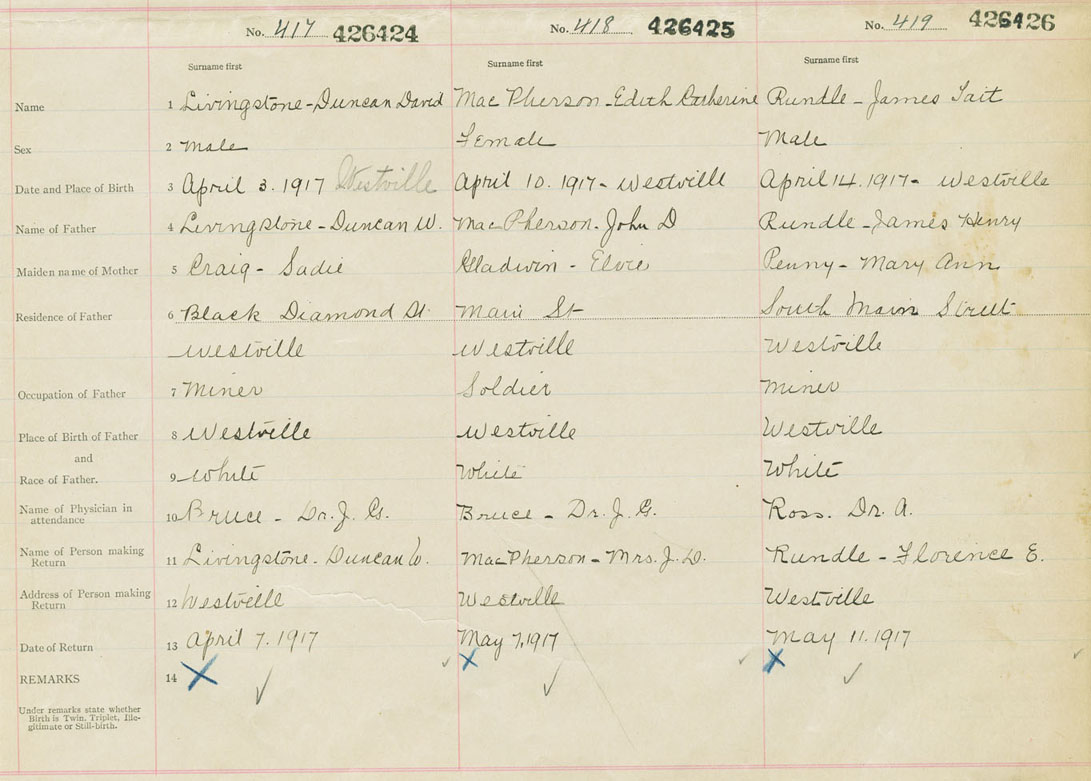 No. 417 426424 No. 418 426425 No. 419 426426
Surname first Surname first Surname first
Name 1 Livingstone - Duncan David MacPherson - Edith Catherine Rundle - James Tait
Sex 2 Male Female Male
Date and Place of Birth 3 April 3. 1917 Westville April 10. 1917 - Westville April 14. 1917 - Westville
Name of Father 4 Livingstone - Duncan W. MacPherson - John D Rundle - James Henry
Maiden name of Mother 5 Craig - Sadie Gladwin - Elvie Penny - Mary Ann
Residence of Father 6 Black Diamond St. Main St South Main Street
Westville Westville Westville
Occupation of Father 7 Miner Soldier Miner
Place of Birth of Father 8 Westville Westville Westville
and
Race of Father. 9 White White White
Name of Physician in
attendance 10 Bruce - Dr. J. G. Bruce - Dr. J. G. Ross. Dr. A.
Name of Person making
Return 11 Livingstone - Duncan W. MacPherson - Mrs. J. D. Rundle - Florence E.
Address of Person making
Return 12 Westville Westville Westville
Date of Return 13 April 7. 1917 May 7, 1917 May 11. 1917
REMARKS 14
Under remarks state whether
Birth is Twin. Triplet, Ille-
gitimate or Still-birth.